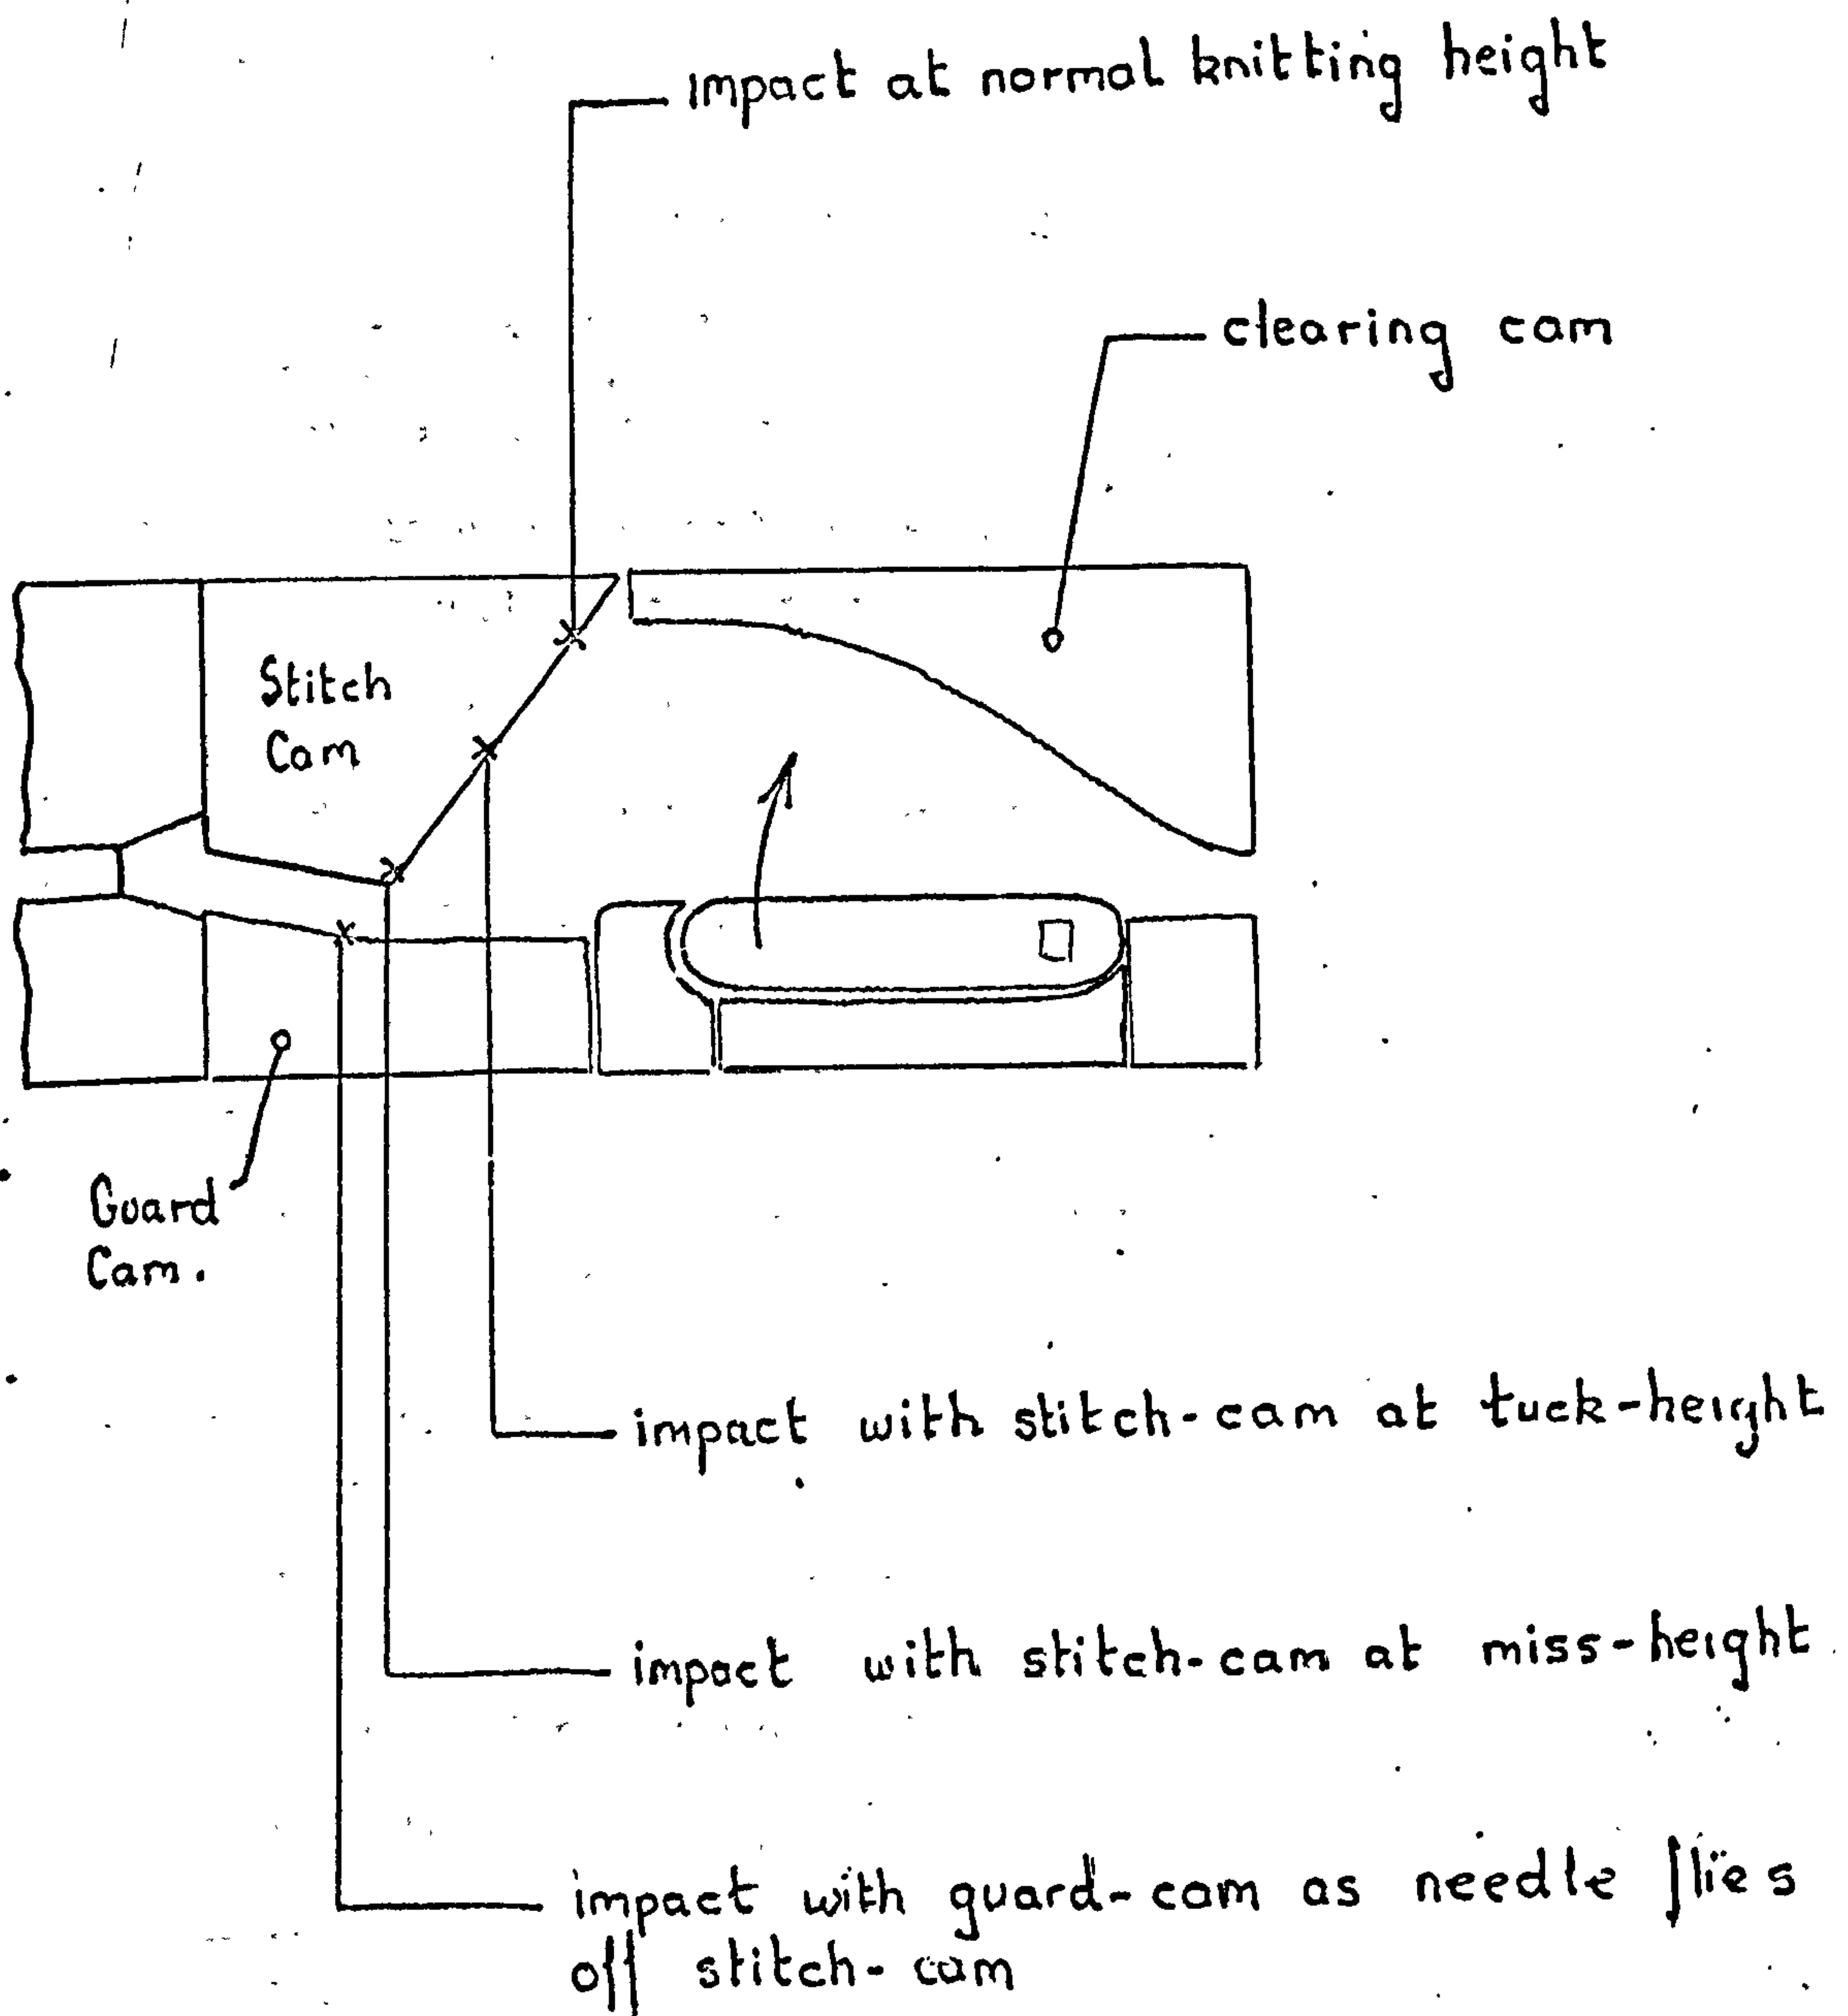 impact at normal knitting height
clearing cam
Stitch
Cam
Guard
Cam.
impact with stitch-cam at tuck-height
impact with stitch-cam at miss-height
impact with guard-cam as needle flies
off stitch-cam